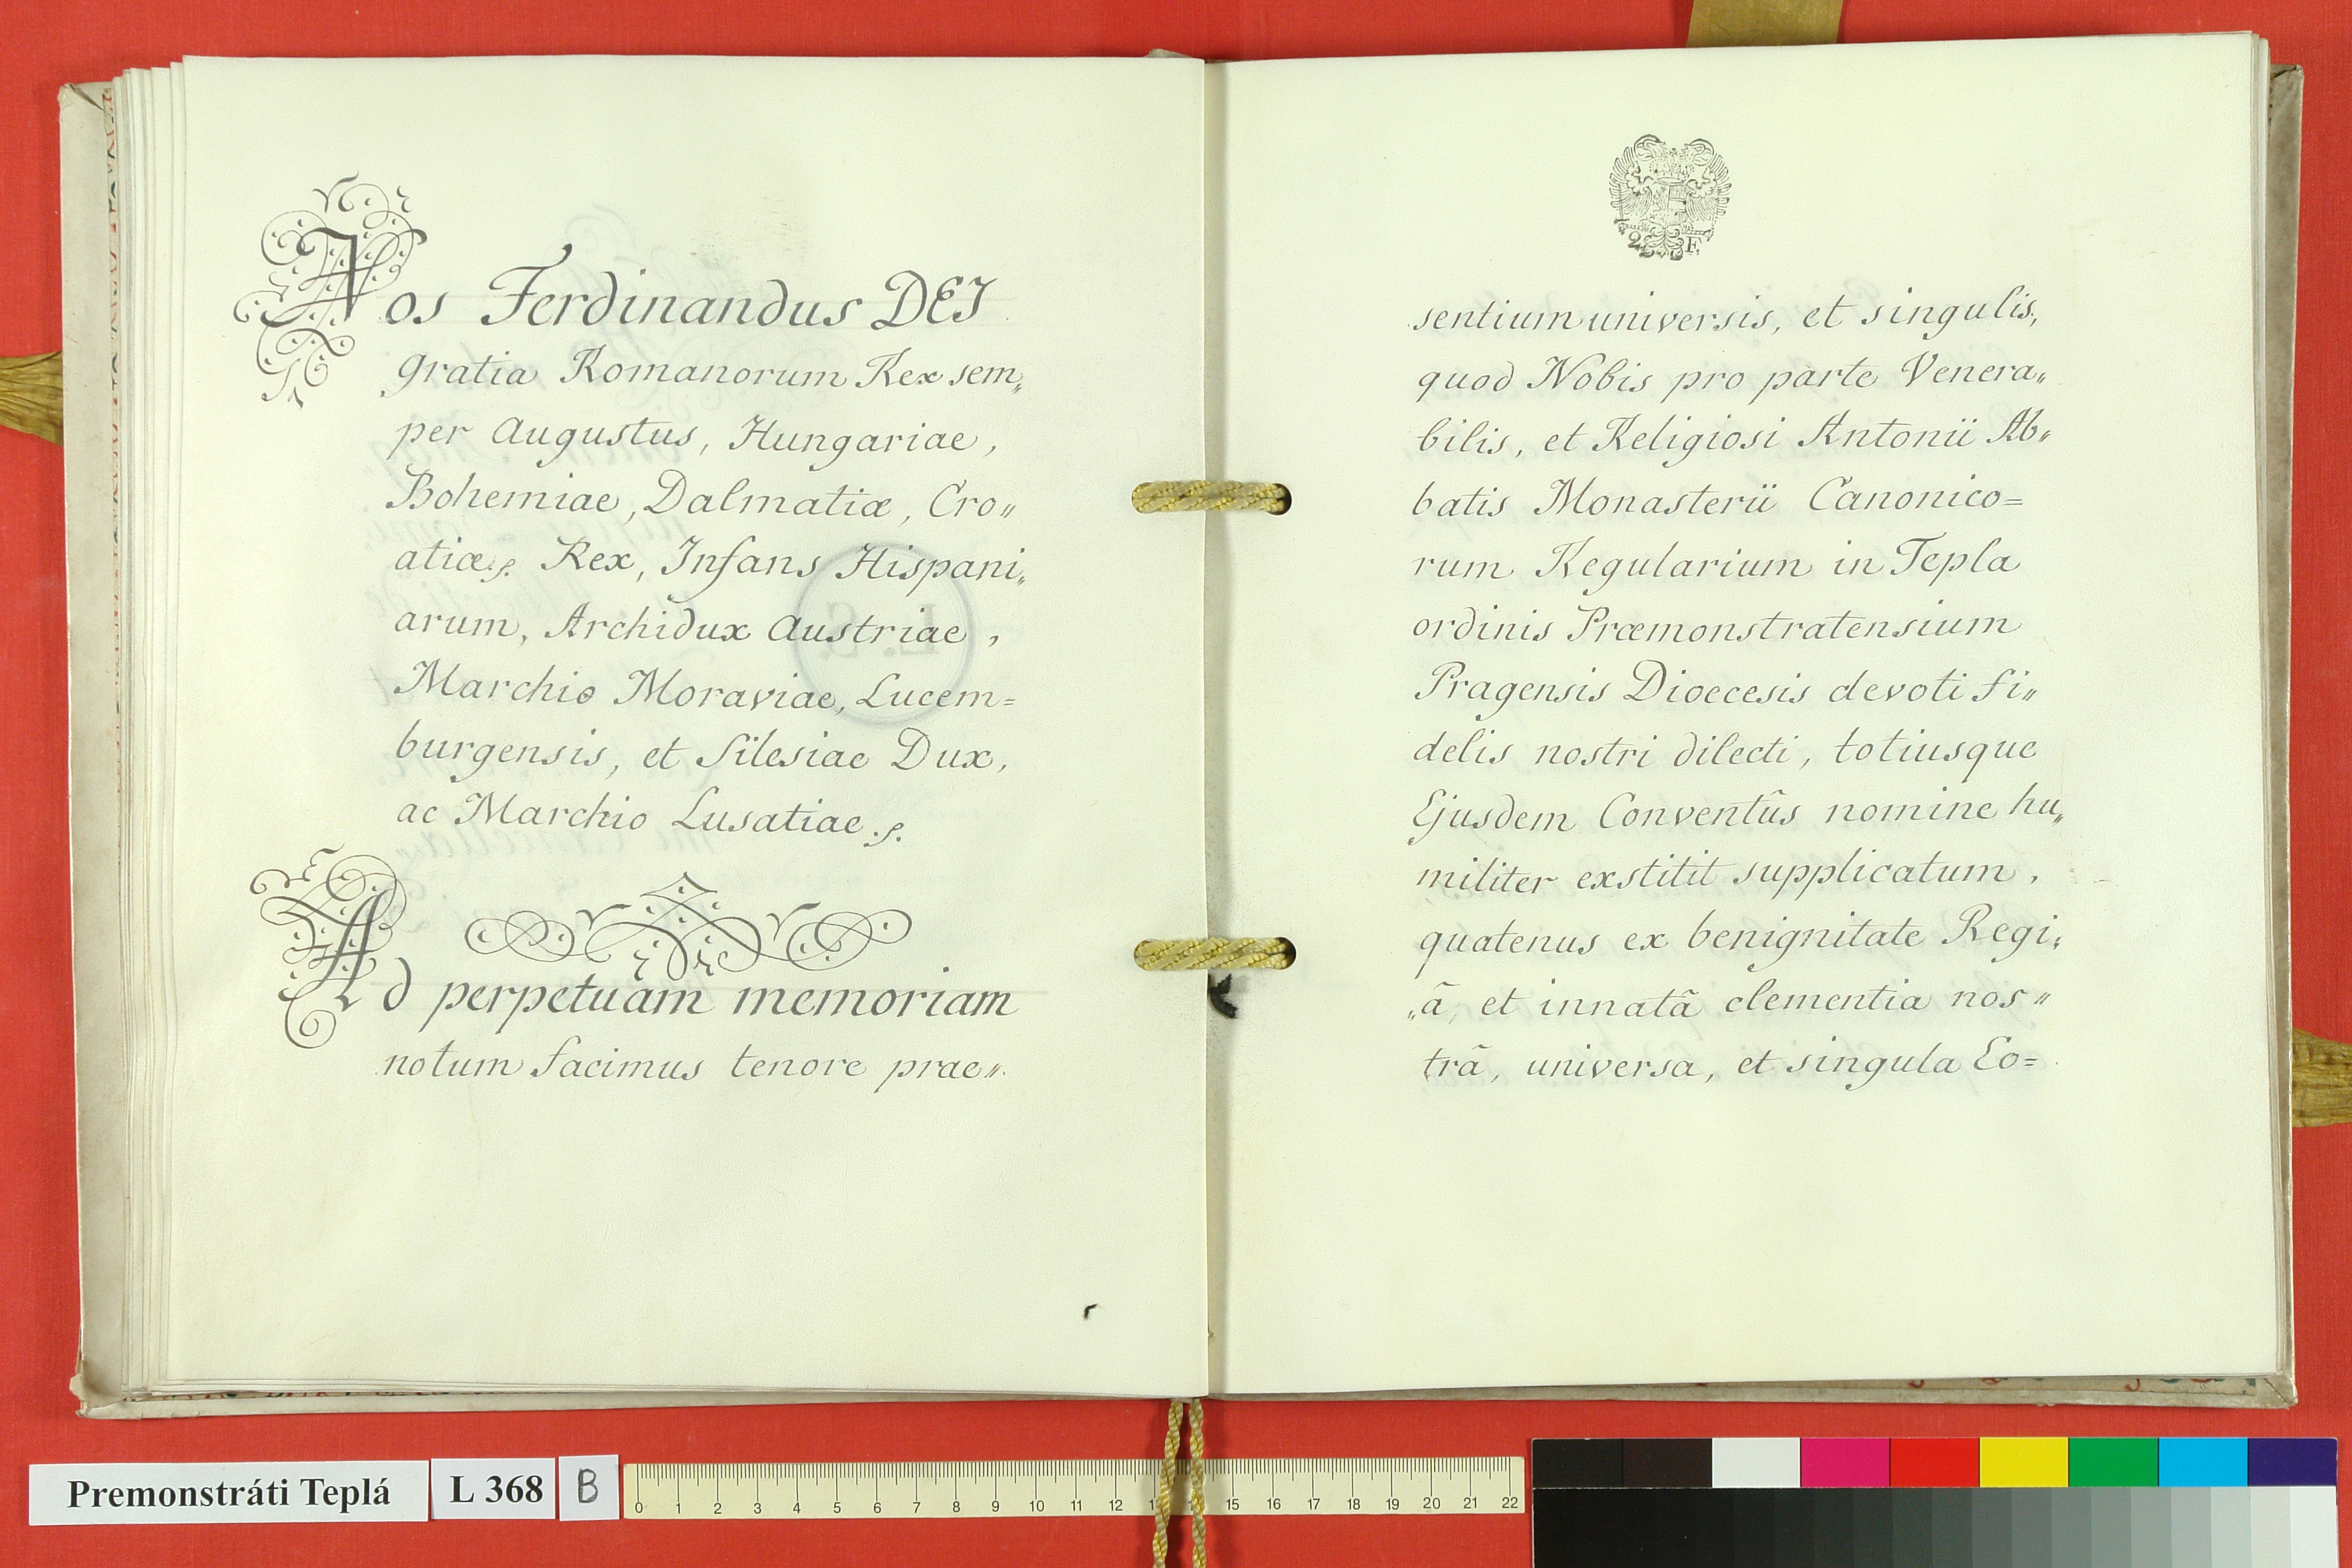 Nos Ferdinandus DEI
gratia Romanorum Rex sem„
per Augustus, Hungariae,
Bohemiae, Dalmatiæ, Cro„
atiæ p. Rex, Infans Hispani„
arum, Archidux Austriae,
Marchio Moraviae, Lucem=
burgensis, et Silesiae Dux,
ac Marchio Lusatiae p.
Ad perpetuam memoriam
notum facimus tenore prae„
2 F.
sentium universis, et singulis,
quod Nobis pro parte Venera„
bilis, et Religiosi Antonii Ab„
batis Monasterii Canonico=
rum Regularium in Tepla
ordinis Præmonstratensium
Pragensis Dioecesis devoti fi„
delis nostri dilecti, totiusque
Ejusdem Conventûs nomine hu„
militer exstitit supplicatum,
quatenus ex benignitate Regi„
„â, et innatâ clementia nos„
trâ, universa, et singula Eo=
Premonstráti Teplá
L 368
B
0 1 2 3 4 5 6 7 8 9 10 11 12 13 15 16 17 18 19 20 21 22